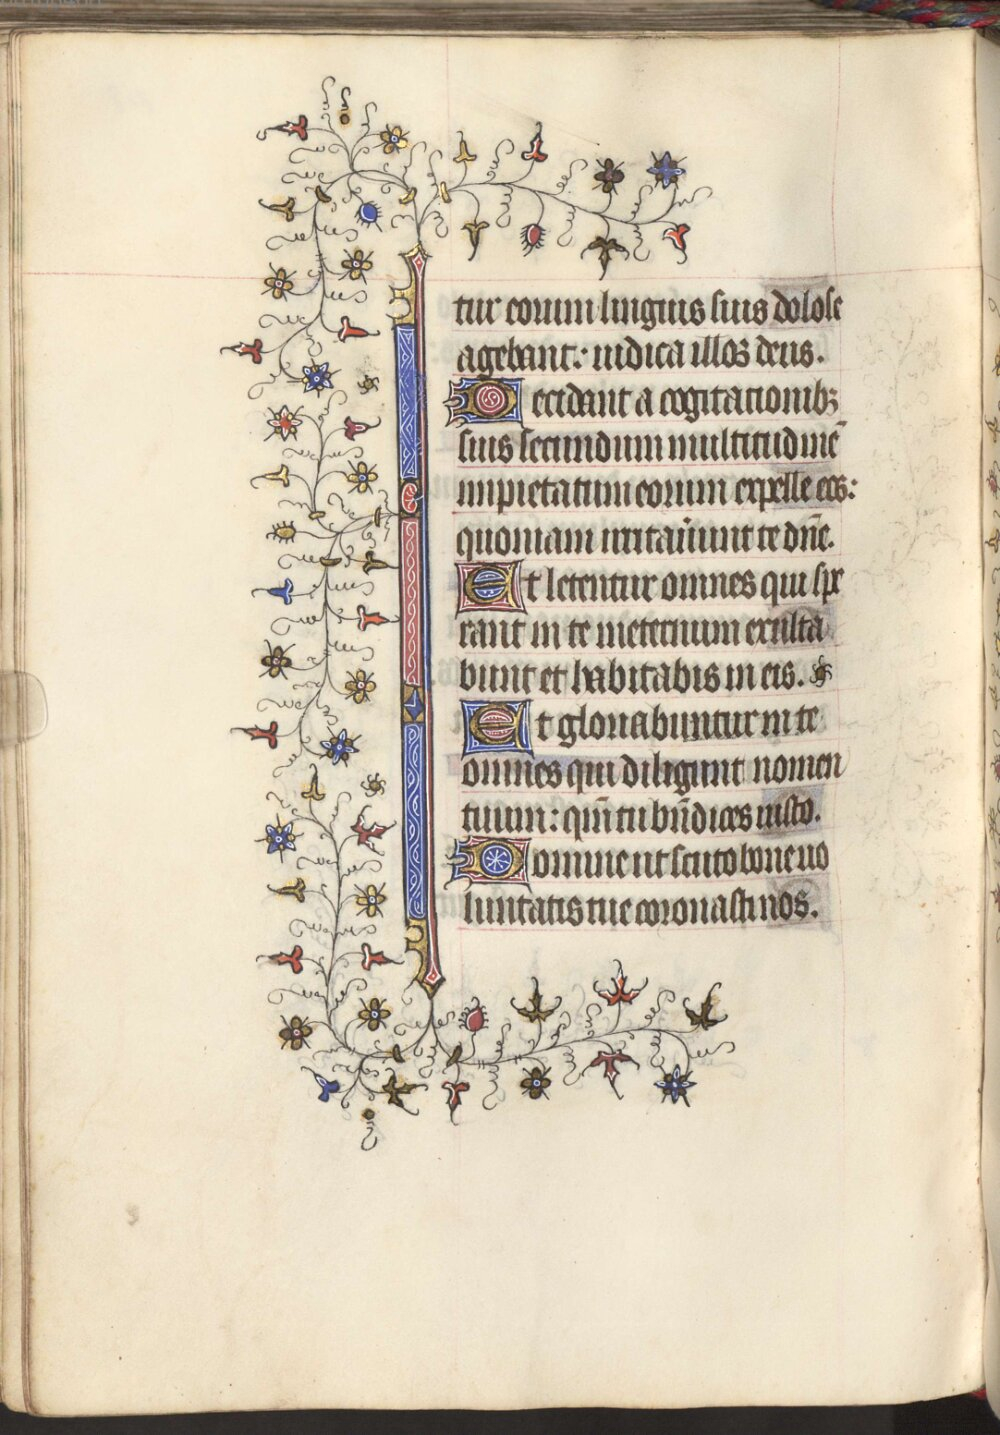 tur eorum linguis suis dolose
agebant: iudica illos deus.
Decidant a cogitationibꝫ
suis secundum multitudinē
impietatum eorum expelle eos:
quoniam irritaūnt te dn̄e.
Et letentur omnes qui spe
rant in te ineternum exulta
bunt et habitabis in eis.
Et gloriabuntur in te
omnes qui diligunt nomen
tuum: qm̄ tu bn̄dices iusto.
Domine ut scuto bone uo
luntatis tue coronasti nos.